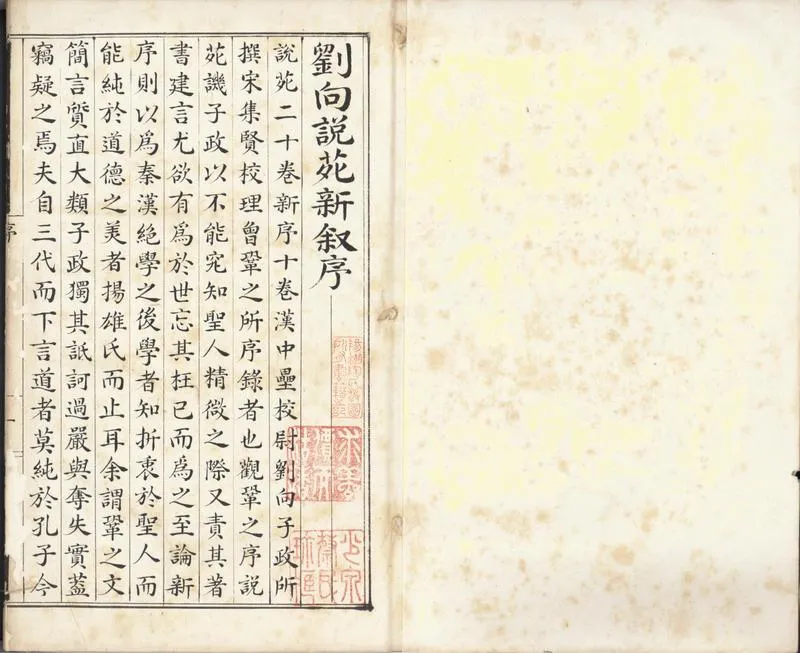 劉向說苑新叙序
說苑二十卷新序十卷漢中壘校尉劉向子政所
撰宋集賢校理曾鞏之所序錄者也觀鞏之序說
苑譏子政以不能究知聖人精微之際又責其著
書建言尤欲有為於世忘其枉已而為之至論新
序則以為秦漢絕學之後學者知折衷於聖人而
能純於道德之美者揚雄氏而止耳余謂鞏之文
簡言質直大類子政獨其詆訶過嚴與奪失實蓋
竊疑之焉夫自三代而下言道者莫純於孔子今
序